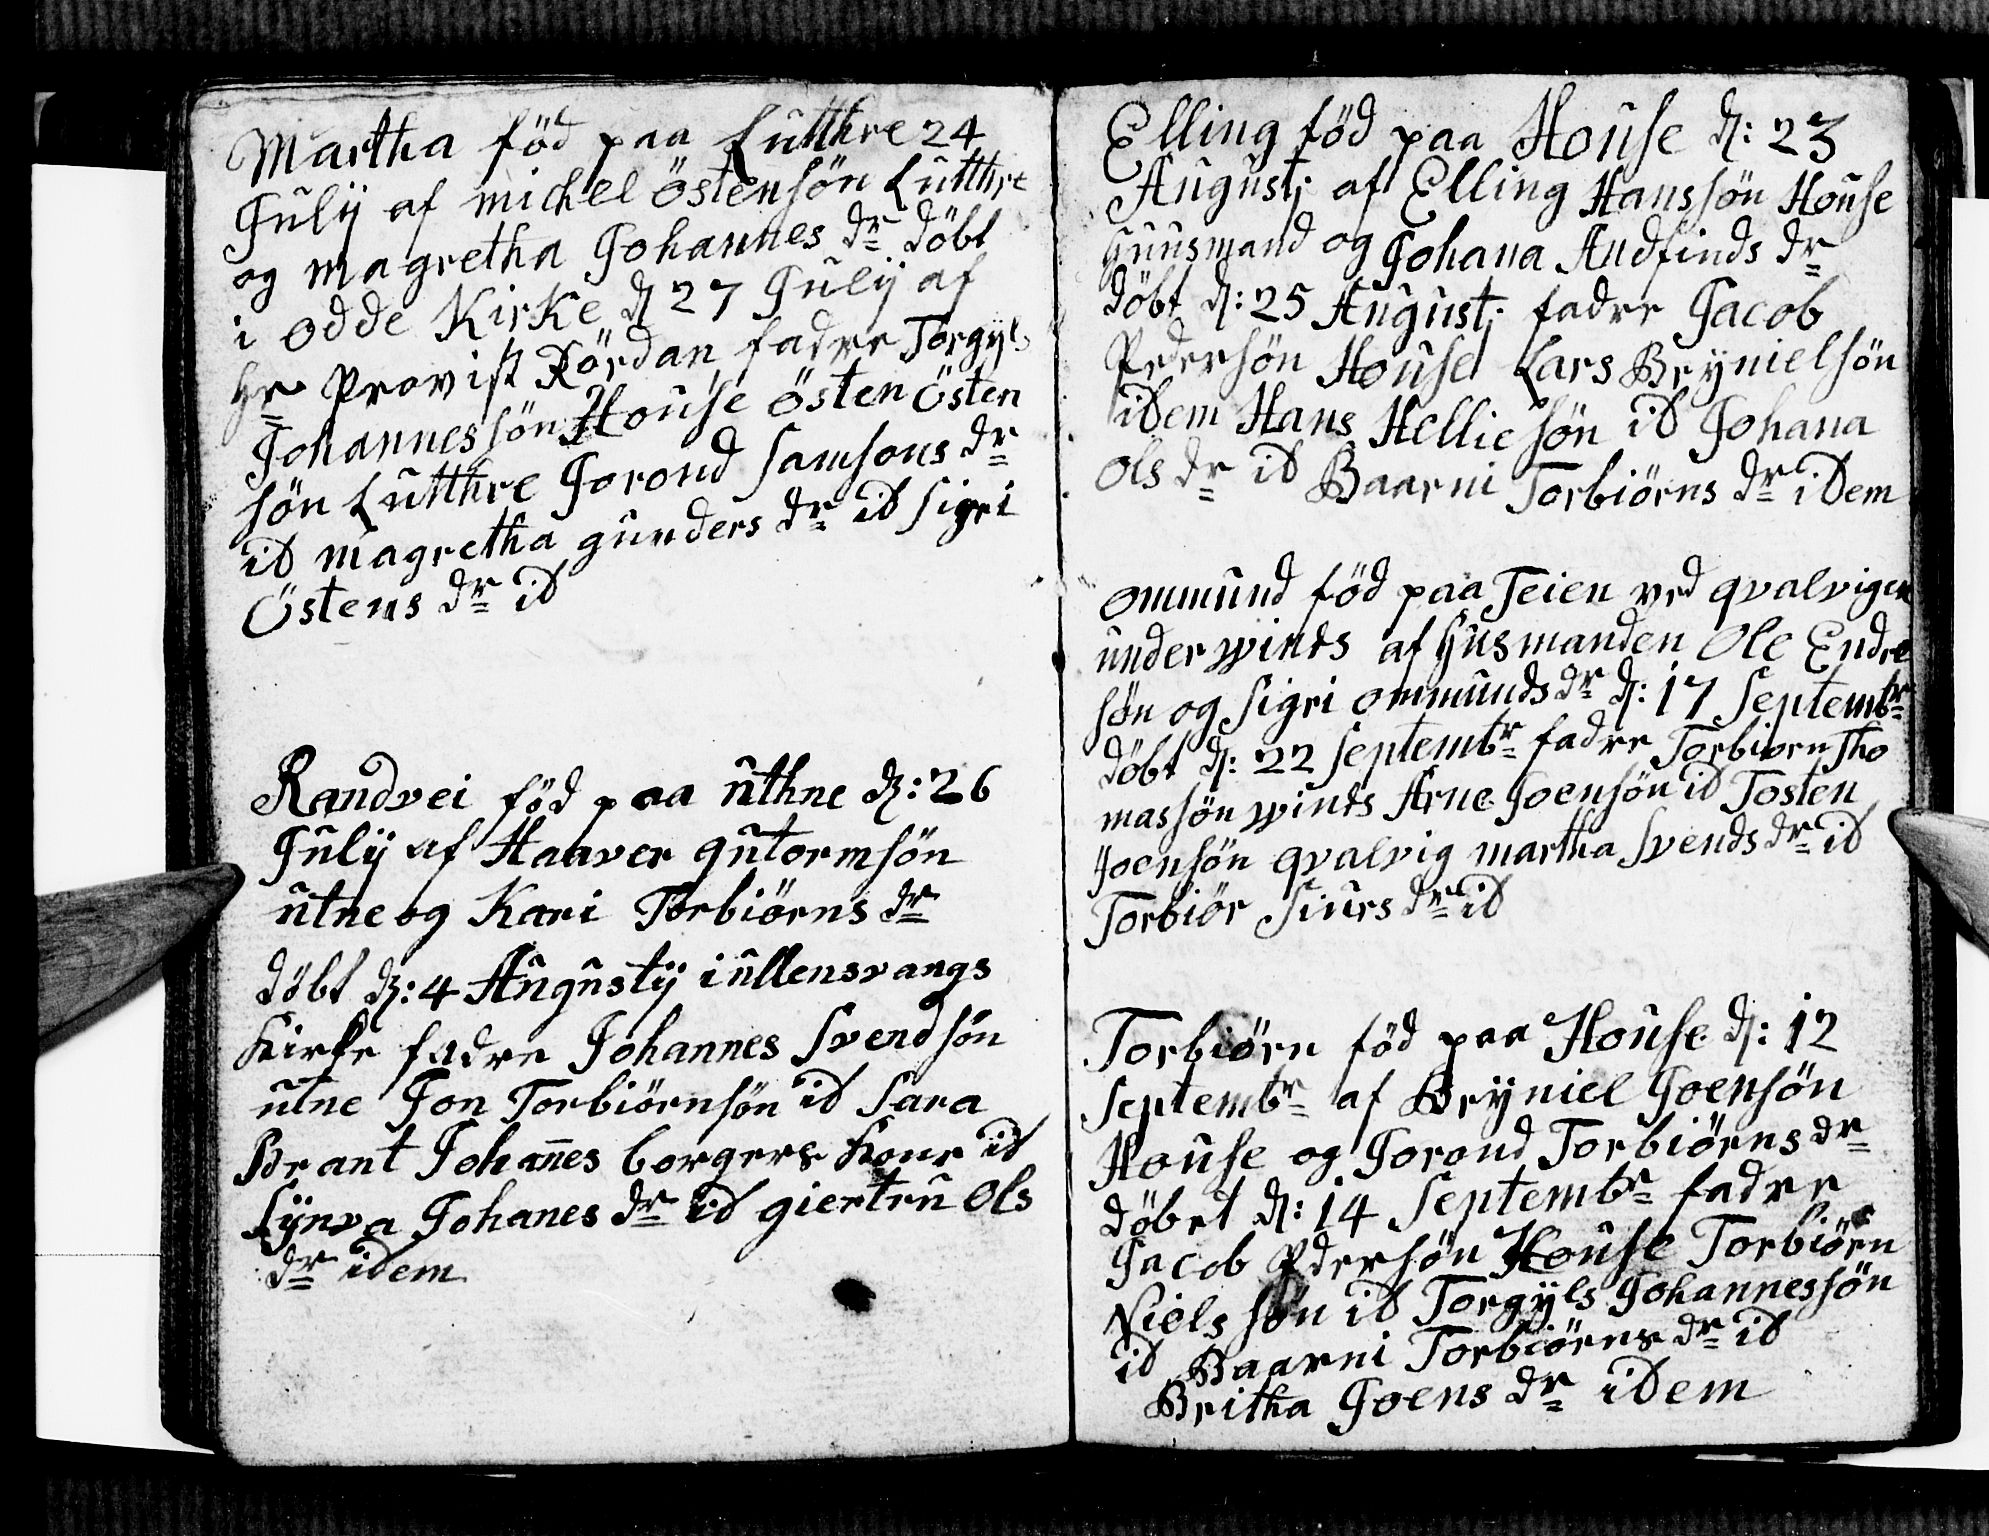 Martha föd paa Lutthre 24
July af michel östensön Lutthre
og magretha Johannes dr döbt
i odde Kirke d 27 July af
Hr Provist Rördan fadre Torgyls
Johannessön House östen östen
sön Lutthre Jorond Samsons dr
id magretha gunders dr id Sigri
Östens dr id
Randvei föd paa uthne d: 26
July af Haaver gutormsön
utne og Kari Torbiörns dr
döbt d: 4 Augusty i ullensvangs
Kirke fadre Johannes Svendsön
utne Jon Torbiörnsön id Sara
Brant Johan̄es borgers Kone id
Synva Johanes dr id giertru Ols
dr idem
Elling föd paa House d: 23
Augusti af Elling Hanssön House
Huusmand og Johana Andfinds dr
döbt d: 25 Augusti fadre Jacob
Pedersön House Lars Brynielsön
idem Hans Helliesön id Johana
Ols dr id Baarni Torbiörns dr idem
ommund föd paa Teien ved qvalvigen
under winds af Husmanden Ole Endre
sön og Sigri ommunds dr d: 17 Septembr
döbt d: 22 Septembr fadre Torbiorn Tho
massön winds Arne Joensön id Tosten
Joensön qvalvig martha Svends dr id
Torbiör Siurs dr id
Torbiörn föd paa House d: 12
Septembr af Bryniel Joensön
House og Jorond Torbiörns dr
döbet d: 14 Septembr fadre
Jacob Pdersön House Torbiörn
Nielssön id Torgyls Johannessön
id Baarni Torbiörns dr id
Britha Joens dr idem